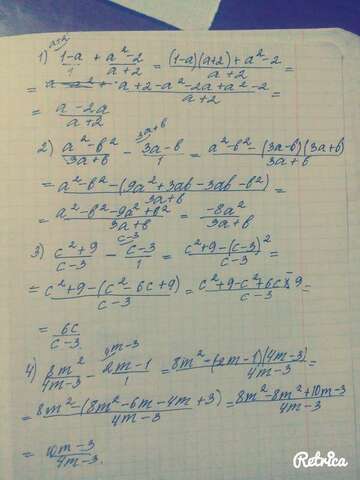 a+2
1) (1-a)/1 + (a²-2)/(a+2) = ((1-a)(a+2)+a²-2)/(a+2) =
= (a+2-a²-2a+a²-2)/(a+2) =
= (a-2a)/(a+2)
3a+b
2) (a²-b²)/(3a+b) - (3a-b)/1 = (a²-b²-(3a-b)(3a+b))/(3a+b) =
= (a²-b²-(9a²+3ab-3ab-b²))/(3a+b) =
= (a²-b²-9a²+b²)/(3a+b) = (-8a²)/(3a+b)
c-3
3) (c²+9)/(c-3) - (c-3)/1 = (c²+9-(c-3)²)/(c-3) =
= (c²+9-(c²-6c+9))/(c-3) = (c²+9-c²+6c-9)/(c-3) =
= 6c/(c-3)
4m-3
4) 8m²/(4m-3) - (2m-1)/1 = (8m²-(2m-1)(4m-3))/(4m-3) =
= (8m²-(8m²-6m-4m+3))/(4m-3) = (8m²-8m²+10m-3)/(4m-3)
= (10m-3)/(4m-3).
Retrica